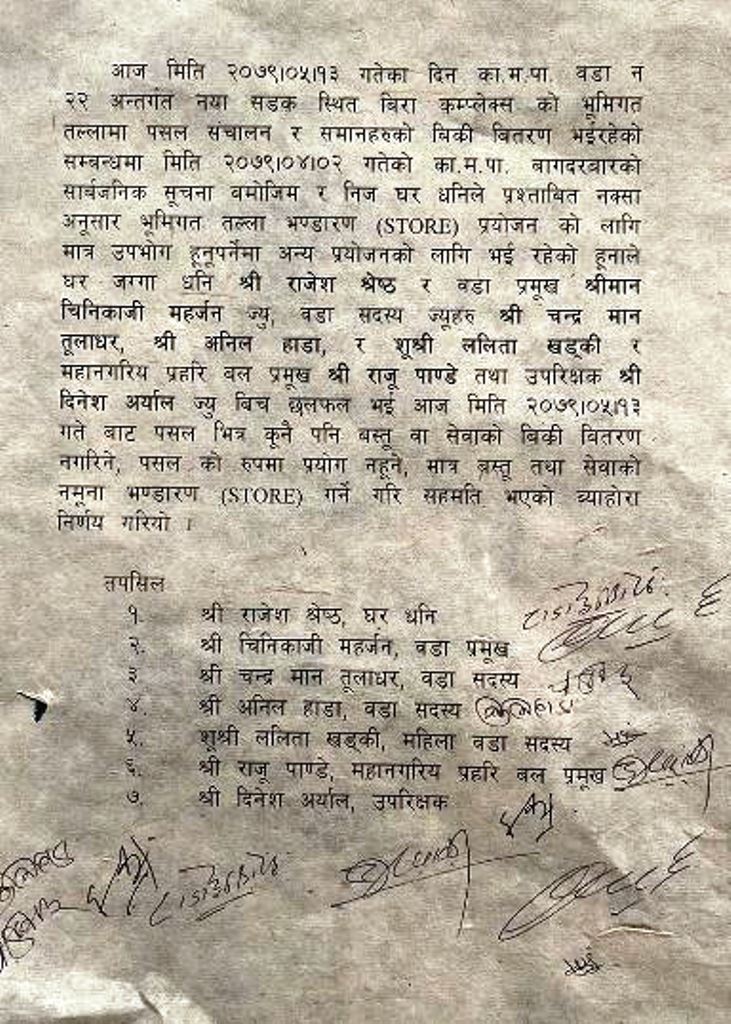 आज मिति २०७९।०५।१३ गतेका दिन का.म.पा. वडा न
२२ अन्तर्गत नया सडक स्थित बिरा कम्प्लेक्स को भूमिगत
तल्लामा पसल संचालन र समानहरुको बिकी बितरण भईरहेको
सम्बन्धमा मिति २०७९।०४।०२ गतेको का.म.पा. बागदरबारको
सार्बजनिक सूचना बमोजिम र निज घर धनिले प्रश्ताबित नक्सा
अनूसार भूमिगत तल्ला भण्डारण (STORE) प्रयोजन को लागि
मात्र उपभोग हूनूपर्नेमा अन्य प्रयोजनको लागि भई रहेको हूनाले
घर जग्गा धनि श्री राजेश श्रेष्ठ र वडा प्रमूख श्रीमान
चिनिकाजी महर्जन ज्यु, वडा सदस्य ज्यूहरु श्री चन्द्र मान
तूलाधर, श्री अनिल हाडा, र शूश्री ललिता खड्की र
महानगरिय प्रहरि बल प्रमूख श्री राजू पाण्डे तथा उपरिक्षक श्री
दिनेश अर्याल ज्यु बिच छलफल भई आज मिति २०७९।०५।१३
गते बाट पसल भित्र कूनै पनि बस्तू वा सेवाको बिकी बितरण
नगरिने, पसल को रुपमा प्रयोग नहूने, मात्र बस्तू तथा सेवाको
नमूना भण्डारण (STORE) गर्ने गरि सहमति भएको ब्याहोरा
निर्णय गरियो ।
तपसिल
१. श्री राजेश श्रेष्ठ, घर धनि
२. श्री चिनिकाजी महर्जन, वडा प्रमूख
३ श्री चन्द्र मान तूलाधर, वडा सदस्य
४. श्री अनिल हाडा, वडा सदस्य
५. शूश्री ललिता खड्की, महिला वडा सदस्य
६. श्री राजू पाण्डे, महानगरिय प्रहरि बल प्रमूख
७. श्री दिनेश अर्याल, उपरिक्षक